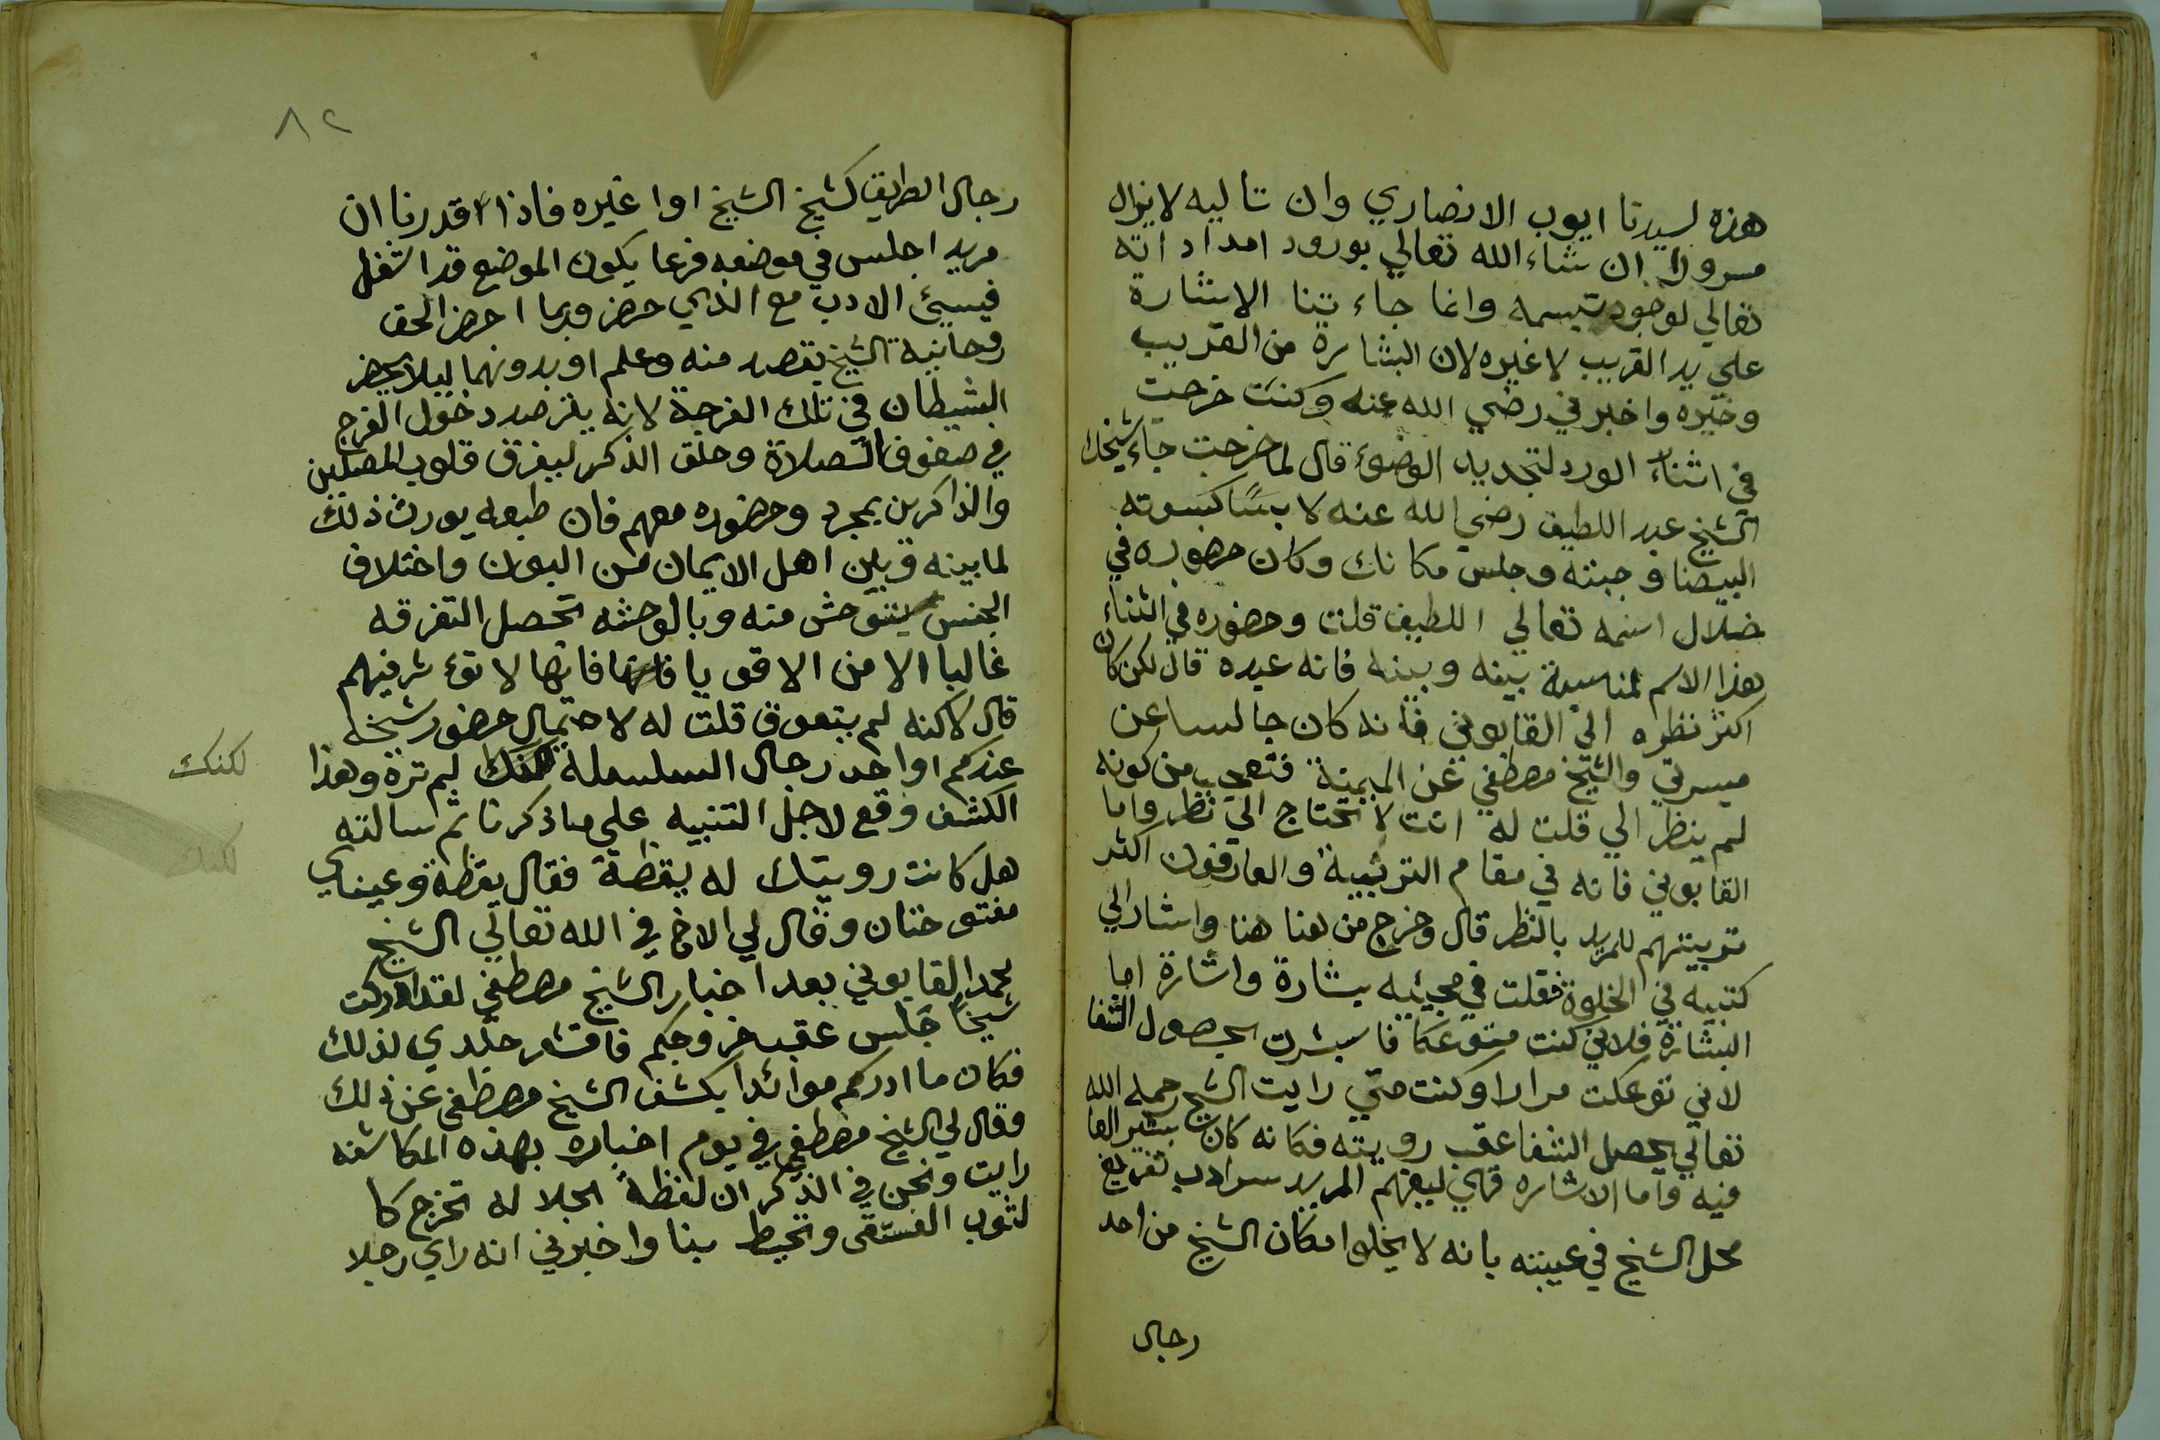 هذه لسيدنا ايوب الانصاري وان تاليه لا يزال
مسرورا ان شاء الله تعالي بورود امداداته
تعالي لوجود تبسمه وانما جاءتنا الاشارة
علي يد القريب لا غيره لان البشارة من القريب
وخيره واخبرني رضي الله عنه وكنت خرجت
في اثناء الورد لتجديد الوضوء قال لما خرجت جاء شيخك
الشيخ عبد اللطيف رضي الله عنه لابسًا كسوته
البيضا وجبته وجلس مكانك وكان حضوره في
خلال اسمه تعالي اللطيف قلت وحضوره في اثناء
هذا الاسم لمناسبة بينه وبينه فانه عبده قال لكن كان
اكثر نظره الي القابوني فانه كان جالسا عن
ميسرتي والشيخ مصطفي عن الميمنة فتعجب من كونه
لم ينظر الي قلت له انت لا تحتاج الي نظر واما
القابوني فانه في مقام التربية والعارفون اكثر
تربيتهم للمريد بالنظر قال وخرج من هنا هنا واشار الي
كتبيه في الخلوة فقلت في مجيئيه بشارة واشارة اما
البشارة فلاني كنت متوعكا فاستبشرت بحصول الشفا
لاني توعكت مرارا وكنت متي رايت الشيخ رحمه الله
تعالي يحصل الشفا عقب رويته فكانه كان بشير الفا
فيه واما الاشاره فهي ليفهم المريد سر ادب تفريغ
محل الشيخ في غيبته بانه لا يخلوا مكان الشيخ من احد
رجال
٨٢
رجال الطريق كشيخ الشيخ اوا غيره فاذا اقدرنا ان
مريدا جلس في موضعه فربما يكون الموضع قد اشتغل
فيسيئ الادب مع الذي حضر وربما احضر الحق
روحانية الشيخ بقصد منه وعلم او بدونهما ليلا يحضر
الشيطان في تلك الفرجة لانه يترصد دخول الفرج
في صفوف الصلاة وحلق الذكر ليفرق قلوب المصلين
والذاكرين بمجرد وحضوره معهم فان طبعه يورث ذلك
لما بينه وبين اهل الايمان من البون واختلاف
الجنس يتوحش منه وبالوحشه تحصل التفرقه
غالبا الا من الاقويا فانها لا تؤثر فيهم
قال لاكنه لم يتعوق قلت له لاحتمال حضور شيخه
عندكم اواحد رجال السلسلة لكنك لم تره وهذا
لكنك
الكشف وقع لاجل التنبيه علي ما ذكرنا ثم سالته
لكنك
هل كانت رويتك له يقظة فقال يقظة وعيناي
مفتوحتان وقال لي الاخ في الله تعالي الشيخ
محمد القابوني بعد اخبار الشيخ مصطفي لقد ادركت
شيخًا جلس عقب خروجكم فاقشعر جلدي لذلك
فكان ما ادركم موائدا بكشف الشيخ مصطفي عن ذلك
وقال لي الشيخ مصطفي في يوم اخباره بهذه المكاشفه
رايت ونحن في الذكر ان لفظة الجلا له تخرج كا
لثوب الفستقي وتحيط بنا واخبرني انه راي رجلا